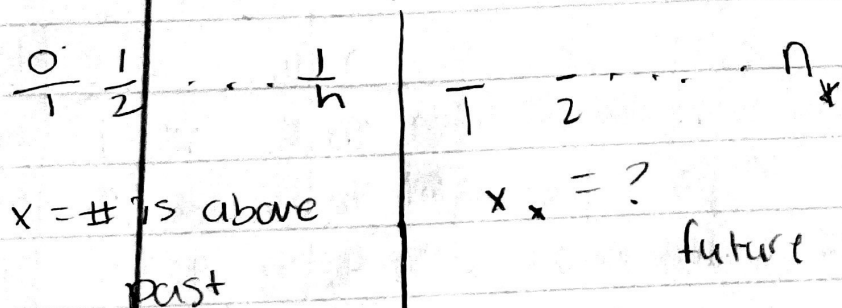 0 1 . . . 1
1 2 n
x = # 1s above
past
1 2 . . . . n*
x* = ?
future